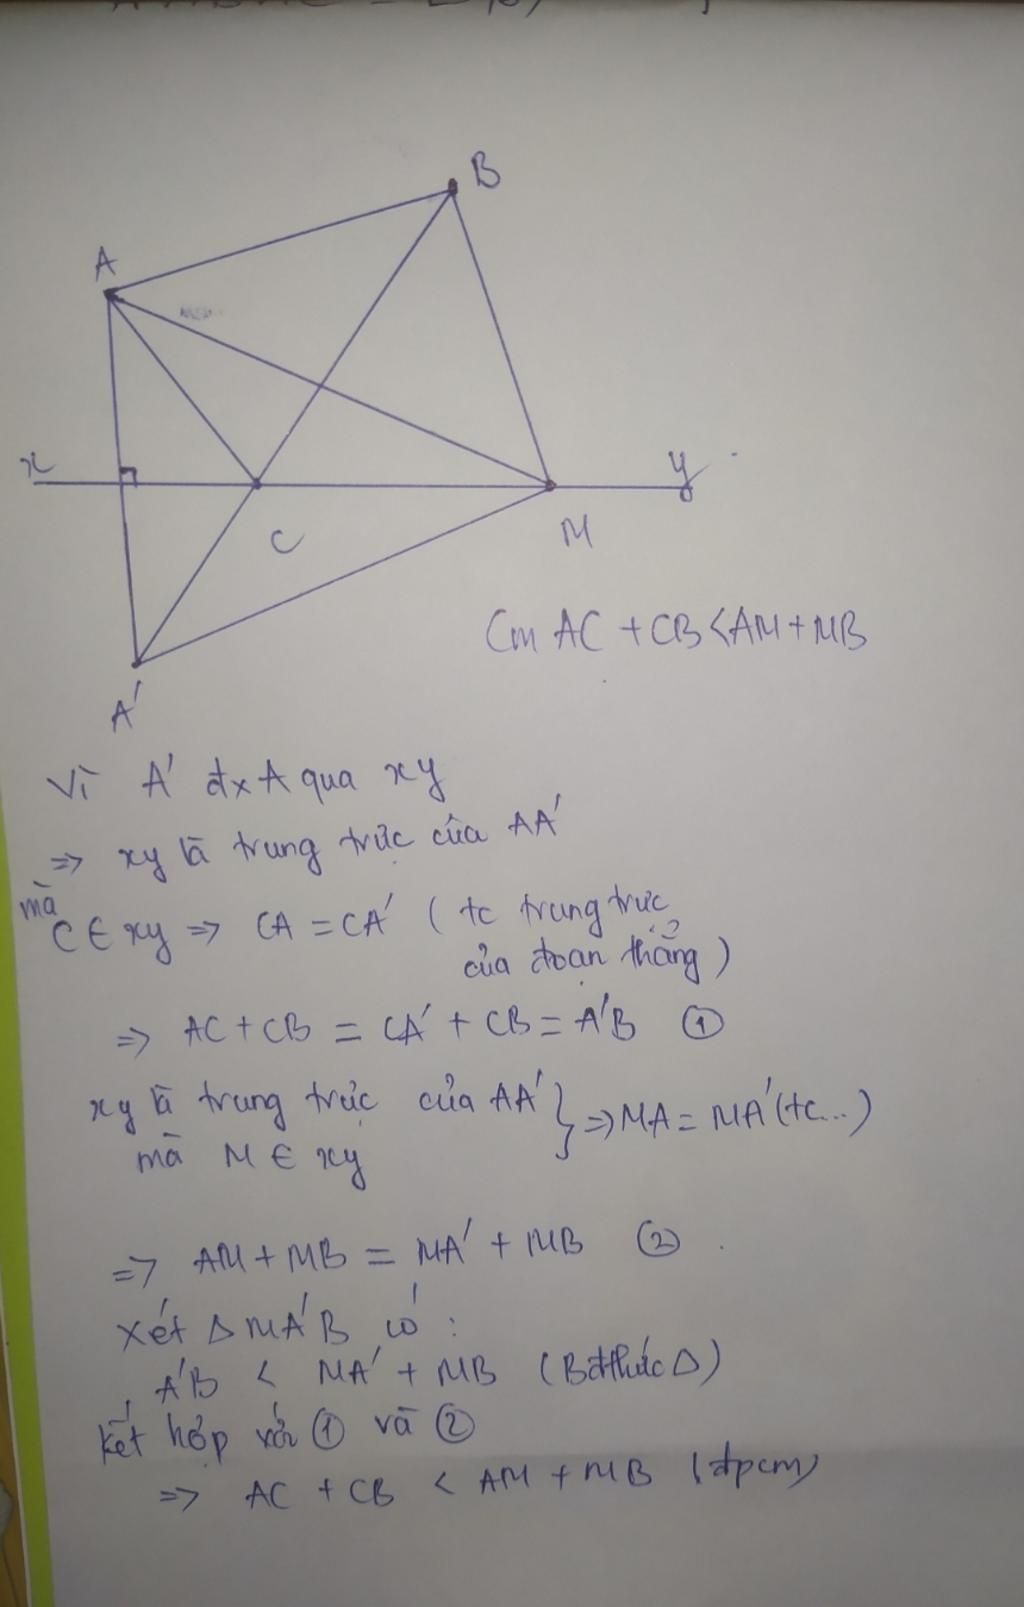 B
A
x
y
C
M
Cm AC + CB < AM + MB
A'
Vì A' đx A qua xy
=> xy là trung trực của AA'
mà
C ∈ xy => CA = CA' ( tc trung trực
của đoạn thẳng )
=> AC + CB = CA' + CB = A'B ①
xy là trung trực của AA' } => MA = MA' (tc...)
mà M ∈ xy
=> AM + MB = MA' + MB ②
Xét Δ MA'B có :
A'B < MA' + MB ( Bđthức Δ )
Kết hợp với ① và ②
=> AC + CB < AM + MB (đpcm)